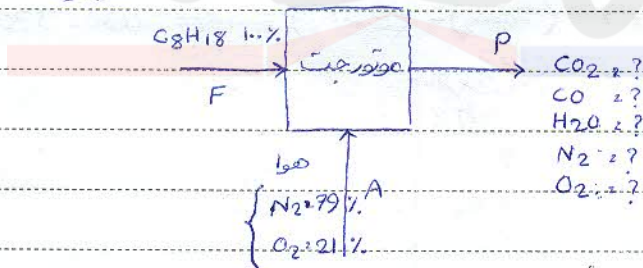 C8H18 100%
موتور جت
F
P
CO2 = ?
CO = ?
H2O = ?
N2 = ?
O2 = ?
هوا
A
N2 = 79%
O2 = 21%